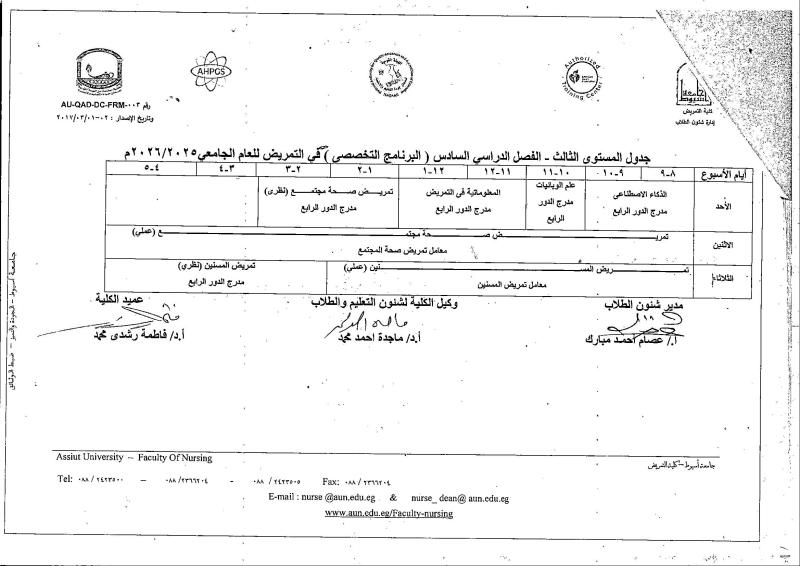 AHPGS
Authorized
Training Center
رقم AU-QAD-DC-FRM-٠٠٣
وتاريخ الإصدار : ٠٢-٠١/٠٣/٢٠١٧
كلية التمريض
إدارة شئون الطلاب
جدول المستوى الثالث - الفصل الدراسي السادس ( البرنامج التخصصي ) في التمريض للعام الجامعي٢٠٢٦/٢٠٢٥م
أيام الأسبوع ٨-٩ ٩-١٠ ١٠-١١ ١١-١٢ ١٢-١ ١-٢ ٢-٣ ٣-٤ ٤-٥
الأحد
الذكاء الاصطناعي
مدرج الدور الرابع
علم الوبائيات
مدرج الدور
الرابع
المعلوماتية في التمريض
مدرج الدور الرابع
تمريض صحة مجتمع (نظري)
مدرج الدور الرابع
الاثنين
تمريض صحة مجتمع (عملي)
معامل تمريض صحة المجتمع
الثلاثاء
تمريض المسنين (عملي)
معامل تمريض المسنين
تمريض المسنين (نظري)
مدرج الدور الرابع
مدير شئون الطلاب
أ./ عصام احمد مبارك
وكيل الكلية لشئون التعليم والطلاب
أ.د/ ماجدة احمد محمد
عميد الكلية
أ.د/ فاطمة رشدى محمد
جامعة أسيوط - الجودة والتميز - ضبط الوثائق
Assiut University – Faculty Of Nursing
جامعة أسيوط - كلية التمريض
Tel: ٠٨٨ / ٢٤٢٣٥٠٠ – ٠٨٨ /٢٣٦٦٢٠٤ - ٠٨٨ / ٢٤٢٣٥٠٥ Fax: ٠٨٨ / ٢٣٦٦٢٠٤
E-mail : nurse @aun.edu.eg & nurse_ dean@ aun.edu.eg
www.aun.edu.eg/Faculty-nursing